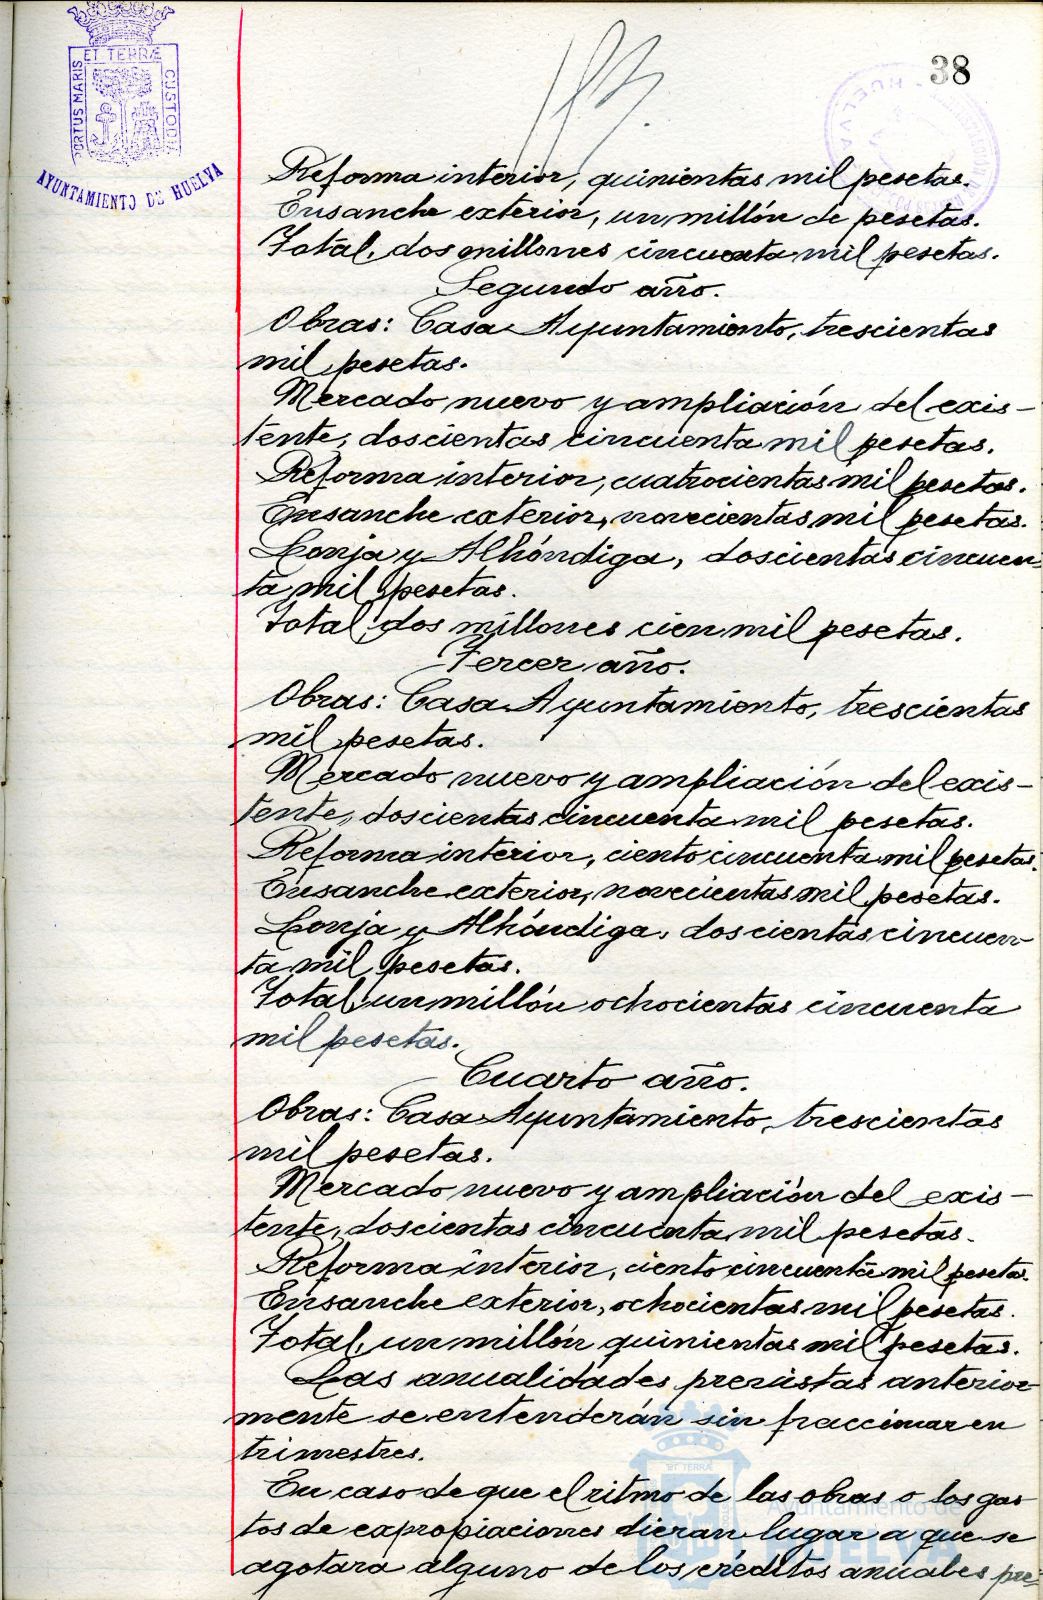 PORTUS MARIS ET TERRÆ CUSTODIA
AYUNTAMIENTO DE HUELVA
38
Reforma interior, quinientas mil pesetas.
Ensanche exterior, un millón de pesetas.
Total, dos millones cincuenta mil pesetas.
Segundo año.
Obras: Casa Ayuntamiento, trescientas
mil pesetas.
Mercado nuevo y ampliación del exis-
tente, doscientas cincuenta mil pesetas.
Reforma interior, cuatrocientas mil pesetas.
Ensanche exterior, novecientas mil pesetas.
Lonja y Alhóndiga, doscientas cincuen-
ta mil pesetas.
Total, dos millones cien mil pesetas.
Tercer año.
Obras: Casa Ayuntamiento, trescientas
mil pesetas.
Mercado nuevo y ampliación del exis-
tente, doscientas cincuenta mil pesetas.
Reforma interior, ciento cincuenta mil pesetas.
Ensanche exterior, novecientas mil pesetas.
Lonja y Alhóndiga, doscientas cincuen-
ta mil pesetas.
Total, un millón ochocientas cincuenta
mil pesetas.
Cuarto año.
Obras: Casa Ayuntamiento, trescientas
mil pesetas.
Mercado nuevo y ampliación del exis-
tente, doscientas cincuenta mil pesetas.
Reforma interior, ciento cincuenta mil pesetas.
Ensanche exterior, ochocientas mil pesetas.
Total, un millón quinientas mil pesetas.
Las anualidades previstas anterior-
mente se entenderán sin fraccionar en
trimestres.
En caso de que el ritmo de las obras o los gas-
tos de expropiaciones dieran lugar a que se
agotara alguno de los créditos anuales pre-
Ayuntamiento de
HUELVA